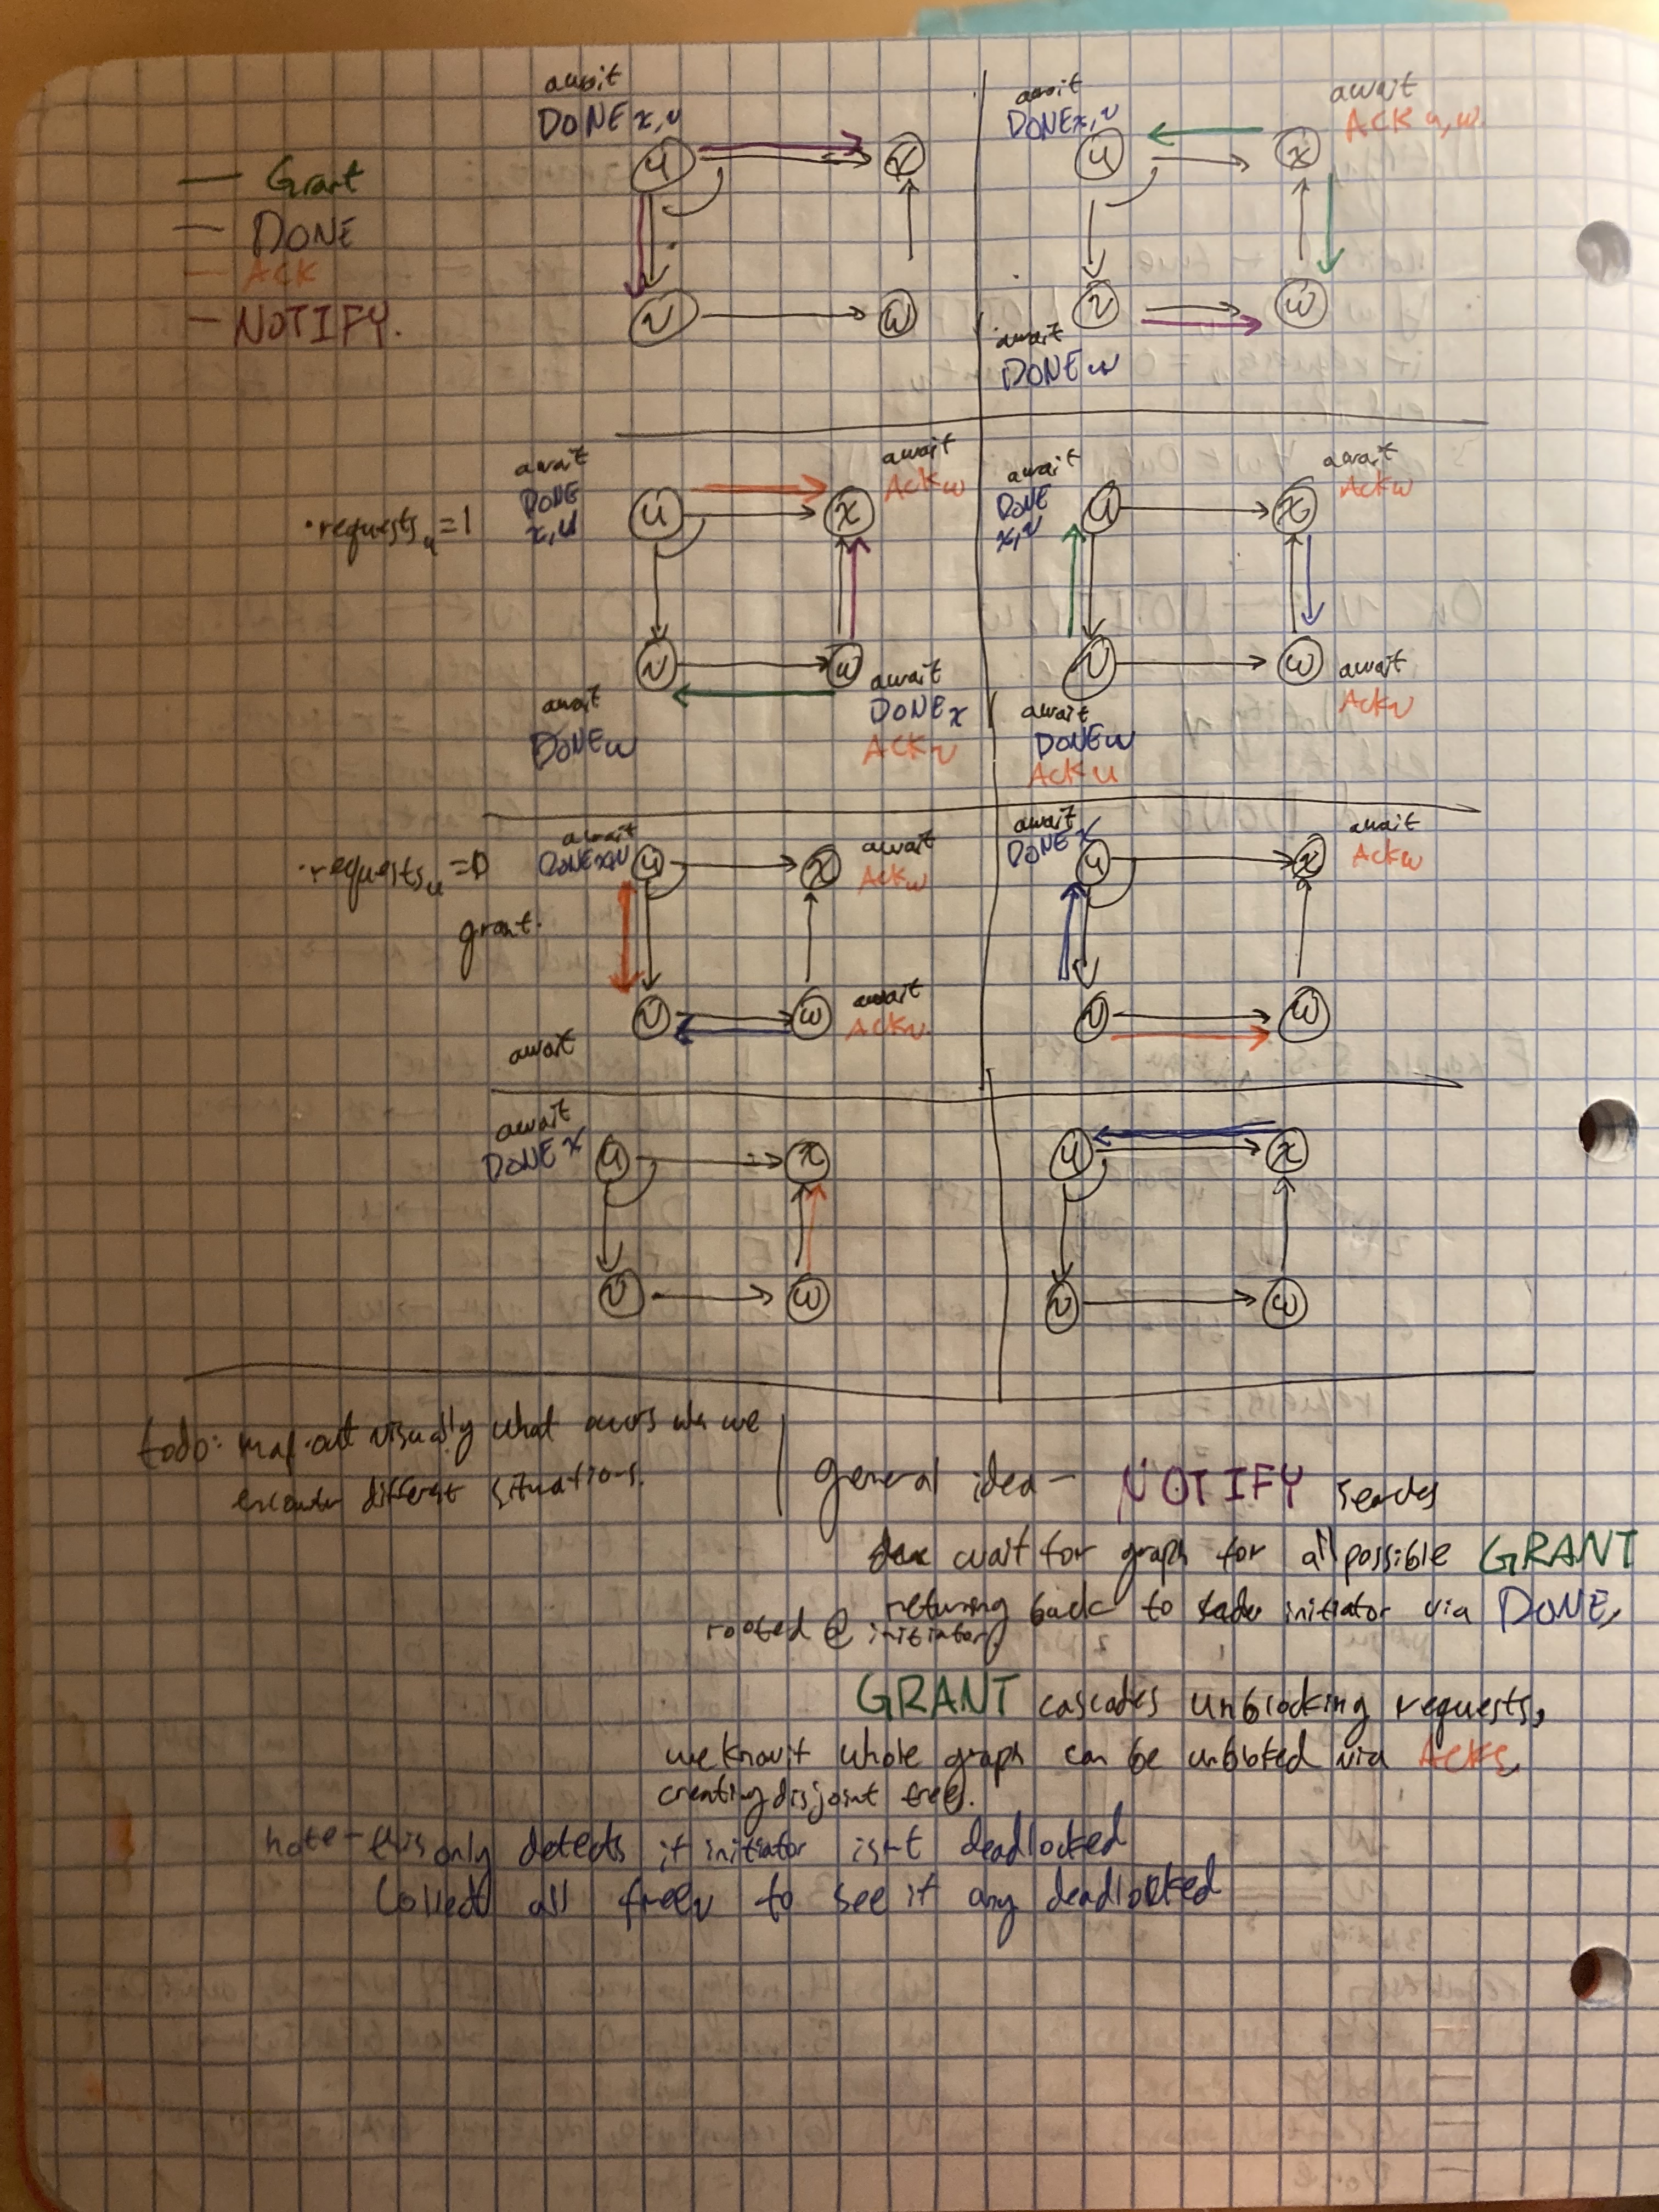 Grant
DONE
ACK
NOTIFY.
await
DONE x,v
u
x
v
w
await
DONE x,v
await
ACK u,w.
u
x
v
w
await
DONE w
• requests u = 1
await
DONE
x,v
u
x
await
ACK w
v
w
await
DONE w
await
DONE x
ACK v
await
DONE
x,v
u
x
await
ACK w
v
w
await
DONE w
ACK u
await
ACK v
• requests u = 0
grant.
await
DONE x,v
u
x
await
ACK w
v
w
await
ACK v.
await
await
DONE x
u
x
await
ACK w
v
w
await
DONE x
u
x
v
w
u
x
v
w
todo: map out visually what occurs when we
encounter different situations.
general idea - NOTIFY searches
wait for graph for all possible GRANT
rooted @ initiator, returning back to initiator via DONE,
GRANT cascades unblocking requests,
we know if whole graph can be unblocked via ACKs,
creating disjoint trees.
note - this only detects if initiator isn't deadlocked
Collect all free v to see if any deadlocked